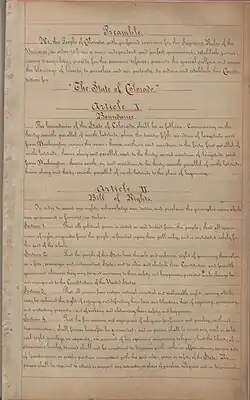 Preamble.
We, the People of Colorado, with profound reverence for the Supreme Ruler of the
Universe, in order to form a more independent and perfect government; establish justice;
insure tranquillity; provide for the common defense; promote the general welfare and secure
the blessings of liberty to ourselves and our posterity, do ordain and establish this Consti-
tution for
"The State of Colorado."
Article I.
Boundaries.
The boundaries of the State of Colorado shall be as follows: Commencing on the
thirty-seventh parallel of north latitude, where the twenty-fifth meridian of longitude west
from Washington crosses the same; thence north, on said meridian, to the forty-first parallel of
north latitude; thence along said parallel west to the thirty-second meridian of longitude west
from Washington; thence south, on said meridian, to the thirty-seventh parallel of north latitude;
thence along said thirty-seventh parallel of north latitude to the place of beginning.
Article II.
Bill of Rights.
In order to assert our rights, acknowledge our duties, and proclaim the principles upon which
our government is founded, we declare:
Section 1. That all political power is vested in and derived from the people; that all govern-
ment of right originates from the people, is founded upon their will only, and is instituted solely for
the good of the whole.
Section 2. That the people of this State have the sole and exclusive right of governing themselves
as a free, sovereign and independent State; and to alter and abolish their Constitution and form of
government whenever they may deem it necessary to their safety and happiness, provided such change be
not repugnant to the Constitution of the United States.
Section 3. That all persons have certain natural, essential and inalienable rights, among which
may be reckoned the right of enjoying and defending their lives and liberties; that of acquiring, possessing
and protecting property; and of seeking and obtaining their safety and happiness.
Section 4. That the free exercise and enjoyment of religious profession and worship, without
discrimination, shall forever hereafter be guaranteed; and no person shall be denied any civil or politi-
cal right, privilege or capacity, on account of his opinions concerning religion; but the liberty of
conscience hereby secured shall not be construed to dispense with oaths or affirmations, excuse acts
of licentiousness or justify practices inconsistent with the good order, peace or safety of the State. No
person shall be required to attend or support any ministry or place of worship, religious sect or denomination